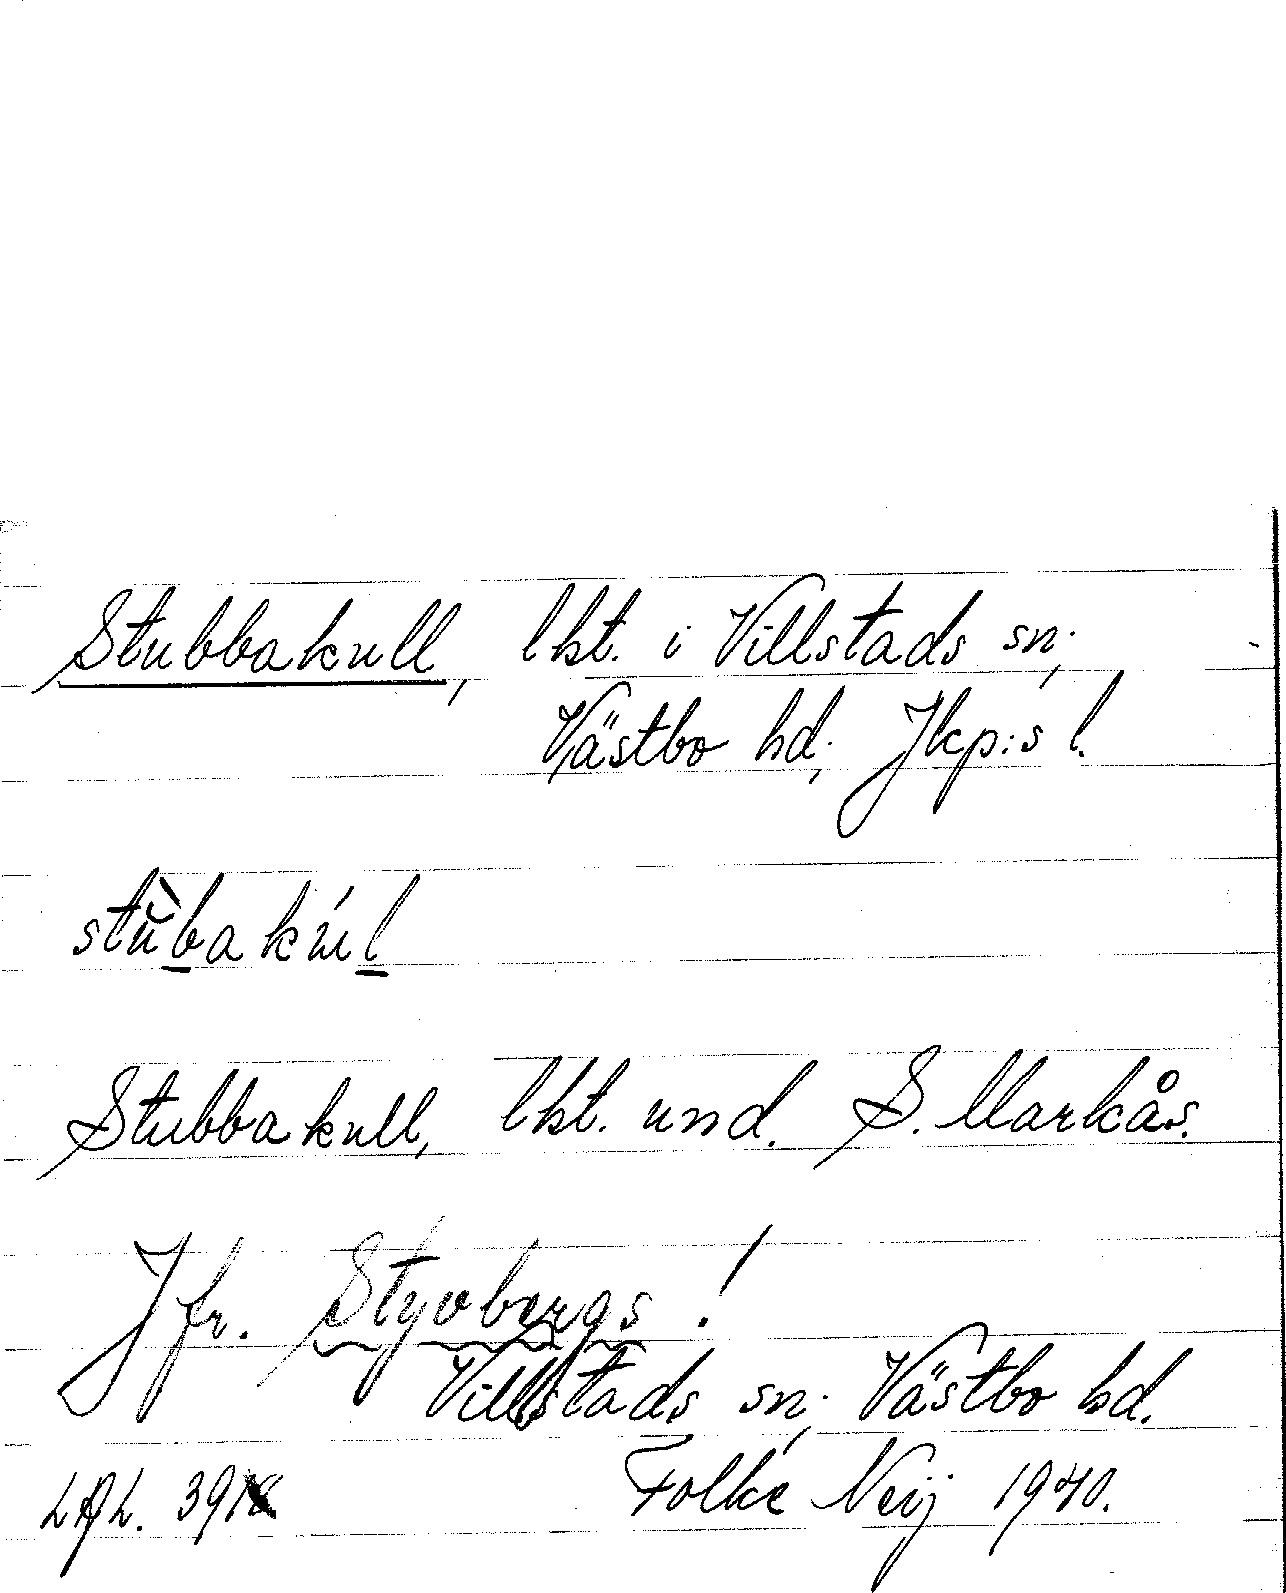 Stubbakull, lkt. i Villstads sn;
Västbo hd; Jkp:s l.
stù̆b̲akúl̲
Stubbakull, lkt. und. S. Markås.
Jfr. Styvbergs!
Villstads sn; Västbo hd.
Folke Neij 1940.